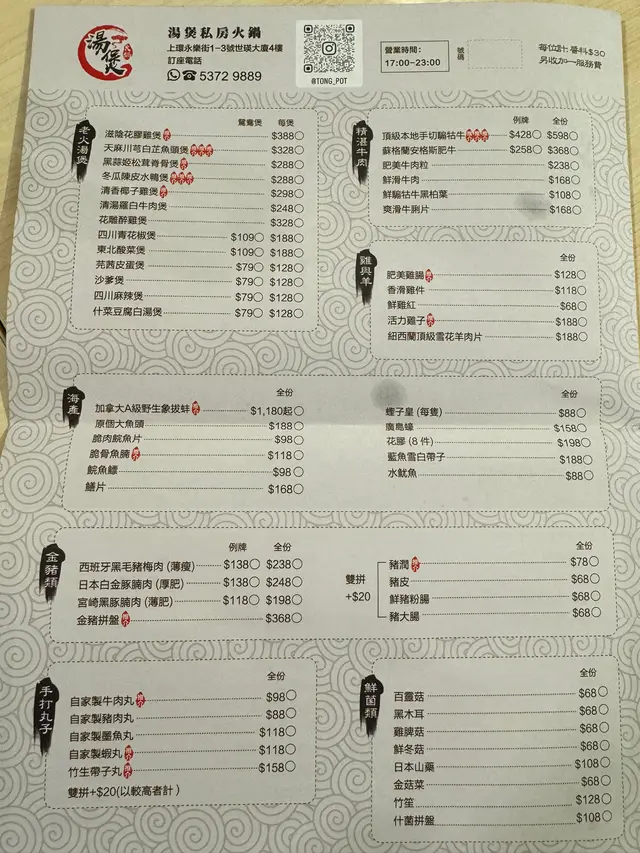 湯煲
火鍋
湯煲私房火鍋
上環永樂街1-3號世瑛大廈4樓
訂座電話
5372 9889
@TONG_POT
營業時間:
17:00-23:00
號碼
每位計:醬料$30
另收加一服務費
老火湯煲
鴛鴦煲 每煲
滋陰花膠雞煲 推介 $388
天麻川芎白芷魚頭煲 推介 推介 推介 $328
黑蒜姬松茸脊骨煲 推介 $288
冬瓜陳皮水鴨煲 推介 推介 推介 $288
清香椰子雞煲 推介 $298
清湯蘿白牛肉煲 $248
花雕醉雞煲 $328
四川青花椒煲 $109 $188
東北酸菜煲 $109 $188
芫茜皮蛋煲 $79 $128
沙爹煲 $79 $128
四川麻辣煲 $79 $128
什菜豆腐白湯煲 $79 $128
精湛牛肉
例牌 全份
頂級本地手切騸牯牛 推介 推介 推介 $428 $598
蘇格蘭安格斯肥牛 $258 $368
肥美牛肉粒 $238
鮮滑牛肉 $168
鮮騸牯牛黑柏葉 $108
爽滑牛脷片 $168
雞與羊
全份
肥美雞腸 推介 $128
香滑雞件 $118
鮮雞紅 $68
活力雞子 推介 $188
紐西蘭頂級雪花羊肉片 $188
海產
全份
加拿大A級野生象拔蚌 推介 $1,180起
原個大魚頭 $188
脆肉鯇魚片 $98
脆骨魚腩 推介 $118
鯇魚鰾 $98
鱔片 $168
全份
蟶子皇 (每隻) $88
廣島蠔 $158
花膠 (8 件) $198
藍魚雪白帶子 $188
水魷魚 $88
金豬類
例牌 全份
西班牙黑毛豬梅肉 (薄瘦) $138 $238
日本白金豚腩肉 (厚肥) $138 $248
宮崎黑豚腩肉 (薄肥) $118 $198
金豬拼盤 推介 $368
雙拼
+$20
全份
豬潤 推介 $78
豬皮 $68
鮮豬粉腸 $68
豬大腸 $68
手打丸子
全份
自家製牛肉丸 推介 $98
自家製豬肉丸 $88
自家製墨魚丸 $118
自家製蝦丸 推介 $118
竹生帶子丸 推介 $158
雙拼+$20(以較高者計)
鮮菌類
全份
百靈菇 $68
黑木耳 $68
雞脾菇 $68
鮮冬菇 $68
日本山藥 $108
金菇菜 $68
竹笙 $128
什菌拼盤 $108